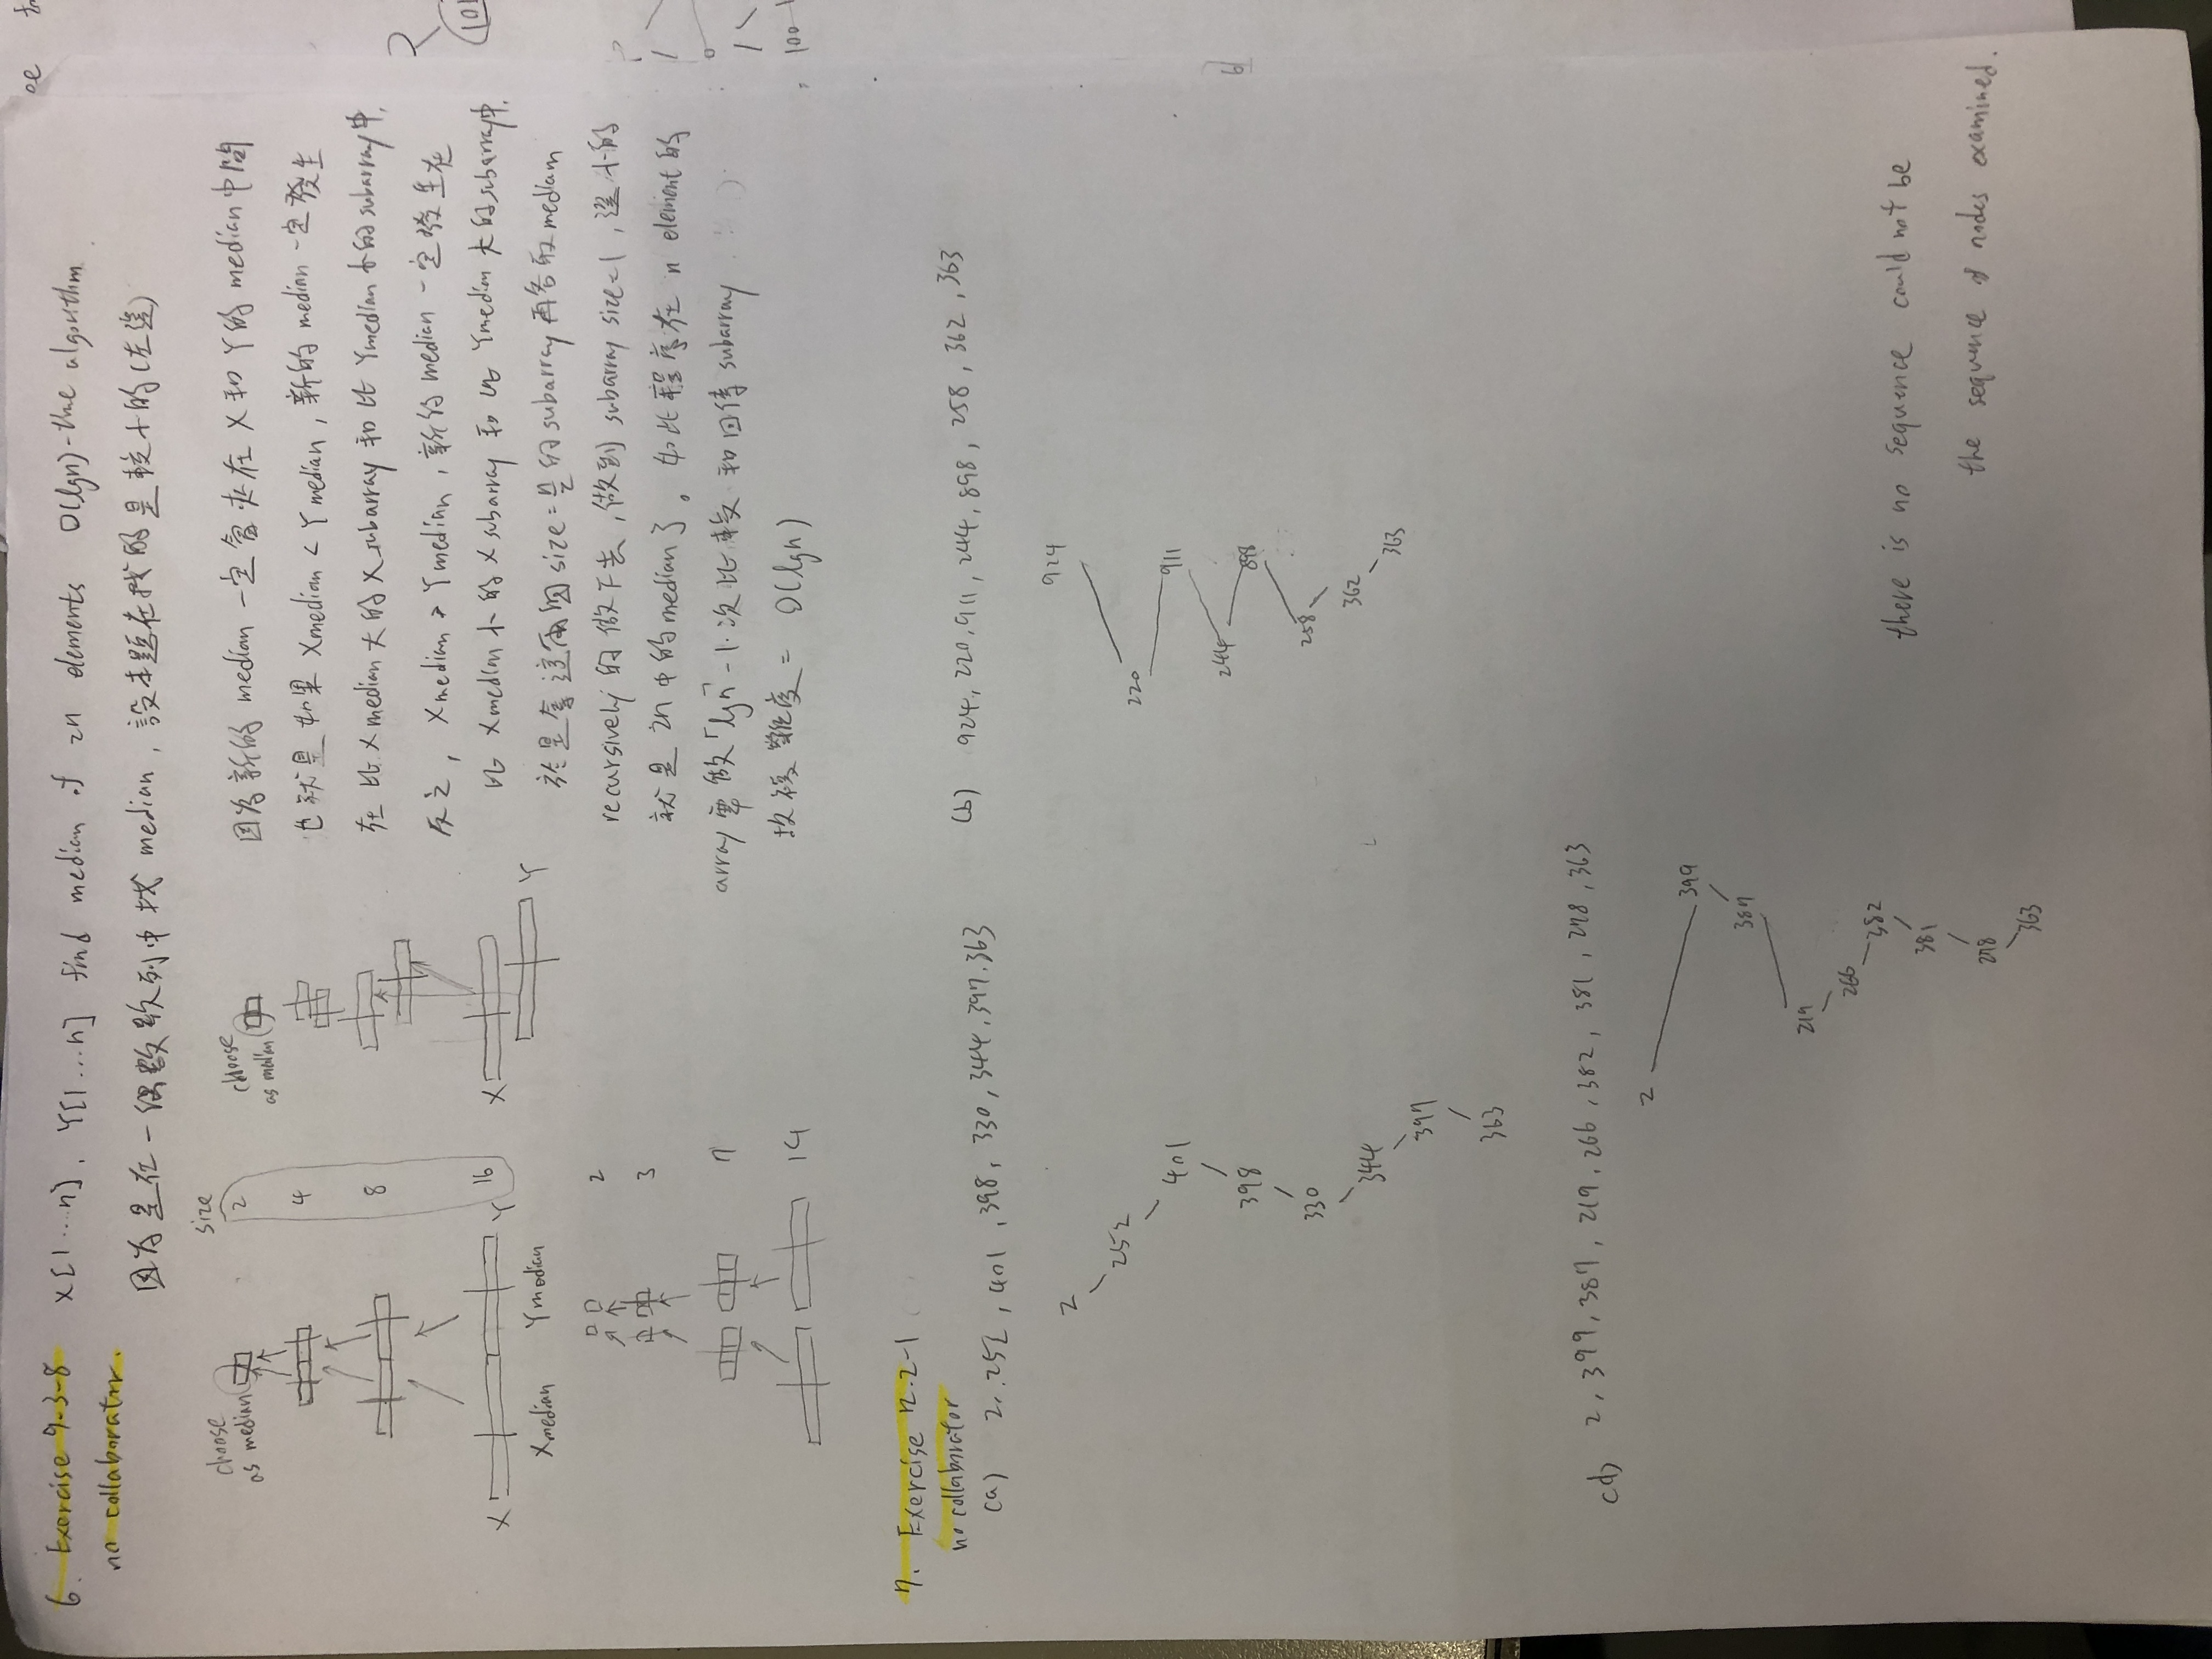 6. Exercise 9.3-8 X[1...n], Y[1...n] find median of 2n elements O(lgn)-time algorithm.
no collaborator.
因為是在一偶數數列中找 median, 設本題在找的是較小的(左邊)
choose
as median
size
2
4
8
16
X
Y
Xmedian Ymedian
choose
as median
X
Y
2
3
7
14
因為新的 median 一定會夾在 X 和 Y 的 median 中間
也就是如果 Xmedian < Ymedian, 新的 median 一定發生
在比 Xmedian 大的 X subarray 和比 Ymedian 小的 subarray 中,
反之, Xmedian > Ymedian, 新的 median 一定發生在
比 Xmedian 小的 X subarray 和比 Ymedian 大的 subarray 中.
於是拿這兩個 size = n/2 的 subarray 再各取 median
recursively 的做下去, 做到 subarray size=1, 選小的
就是 2n 中的 median 了。如此程序在 n element 的
array 要做「lgn」-1 次比較 和回傳 subarray
故複雜度 = O(lgn)
7. Exercise 12.2-1
no collaborator
(a) 2, 252, 401, 398, 330, 344, 397, 363
2
252
401
398
330
344
397
363
(b) 924, 220, 911, 244, 898, 258, 362, 363
924
220
911
244
898
258
362
363
(d) 2, 399, 387, 219, 266, 382, 381, 278, 363
2
399
387
219
266
382
381
278
363
there is no sequence could not be
the sequence of nodes examined.